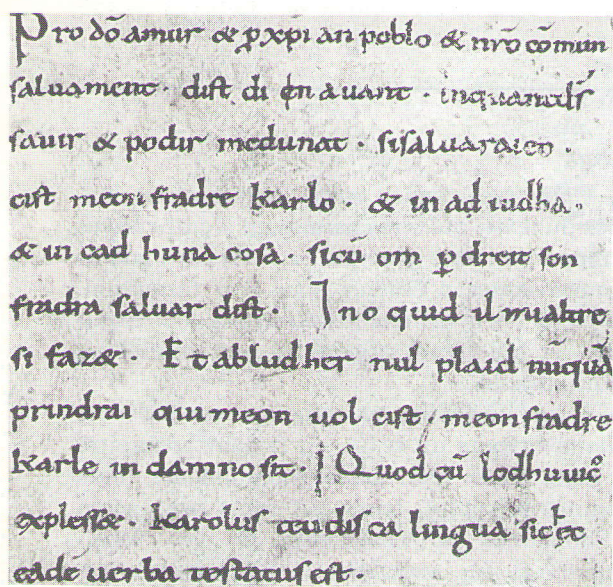 Pro dō amur & ꝓ xp̄i an poblo & nr̄o cōmun
saluament. dist di en auant. inquantd̄s
sauir & podir medunat. sisaluaraieo.
cist meon fradre karlo. & in ad iudha.
& in cad huna cosa. sicū om ꝑ dreit son
fradra saluar dist. Ino quid il mialtre
si faz&. Et abludher nul plaid nūquā
prindrai qui meon uol cist meonfradre
karle in damno sit. Quod cū lodhuuic
expless&. karolus teudisca lingua sic ec
eadē uerba testatus est.